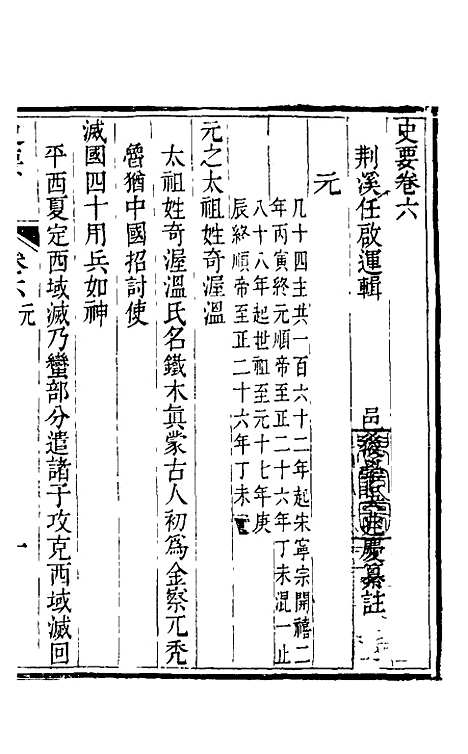 史要卷六
荆溪任啟運輯
邑後學吳兆慶纂註
元
凡十四主共一百六十二年起宋寧宗開禧二
年丙寅終元順帝至正二十六年丁未混一止
八十八年起世祖至元十七年庚
辰終順帝至正二十六年丁未
元之太祖姓奇渥溫
太祖姓奇渥溫氏名鐵木眞蒙古人初爲金察兀秃
魯猶中國招討使
滅國四十用兵如神
平西夏定西域滅乃蠻部分遣諸子攻克西域滅回
卷六元
一